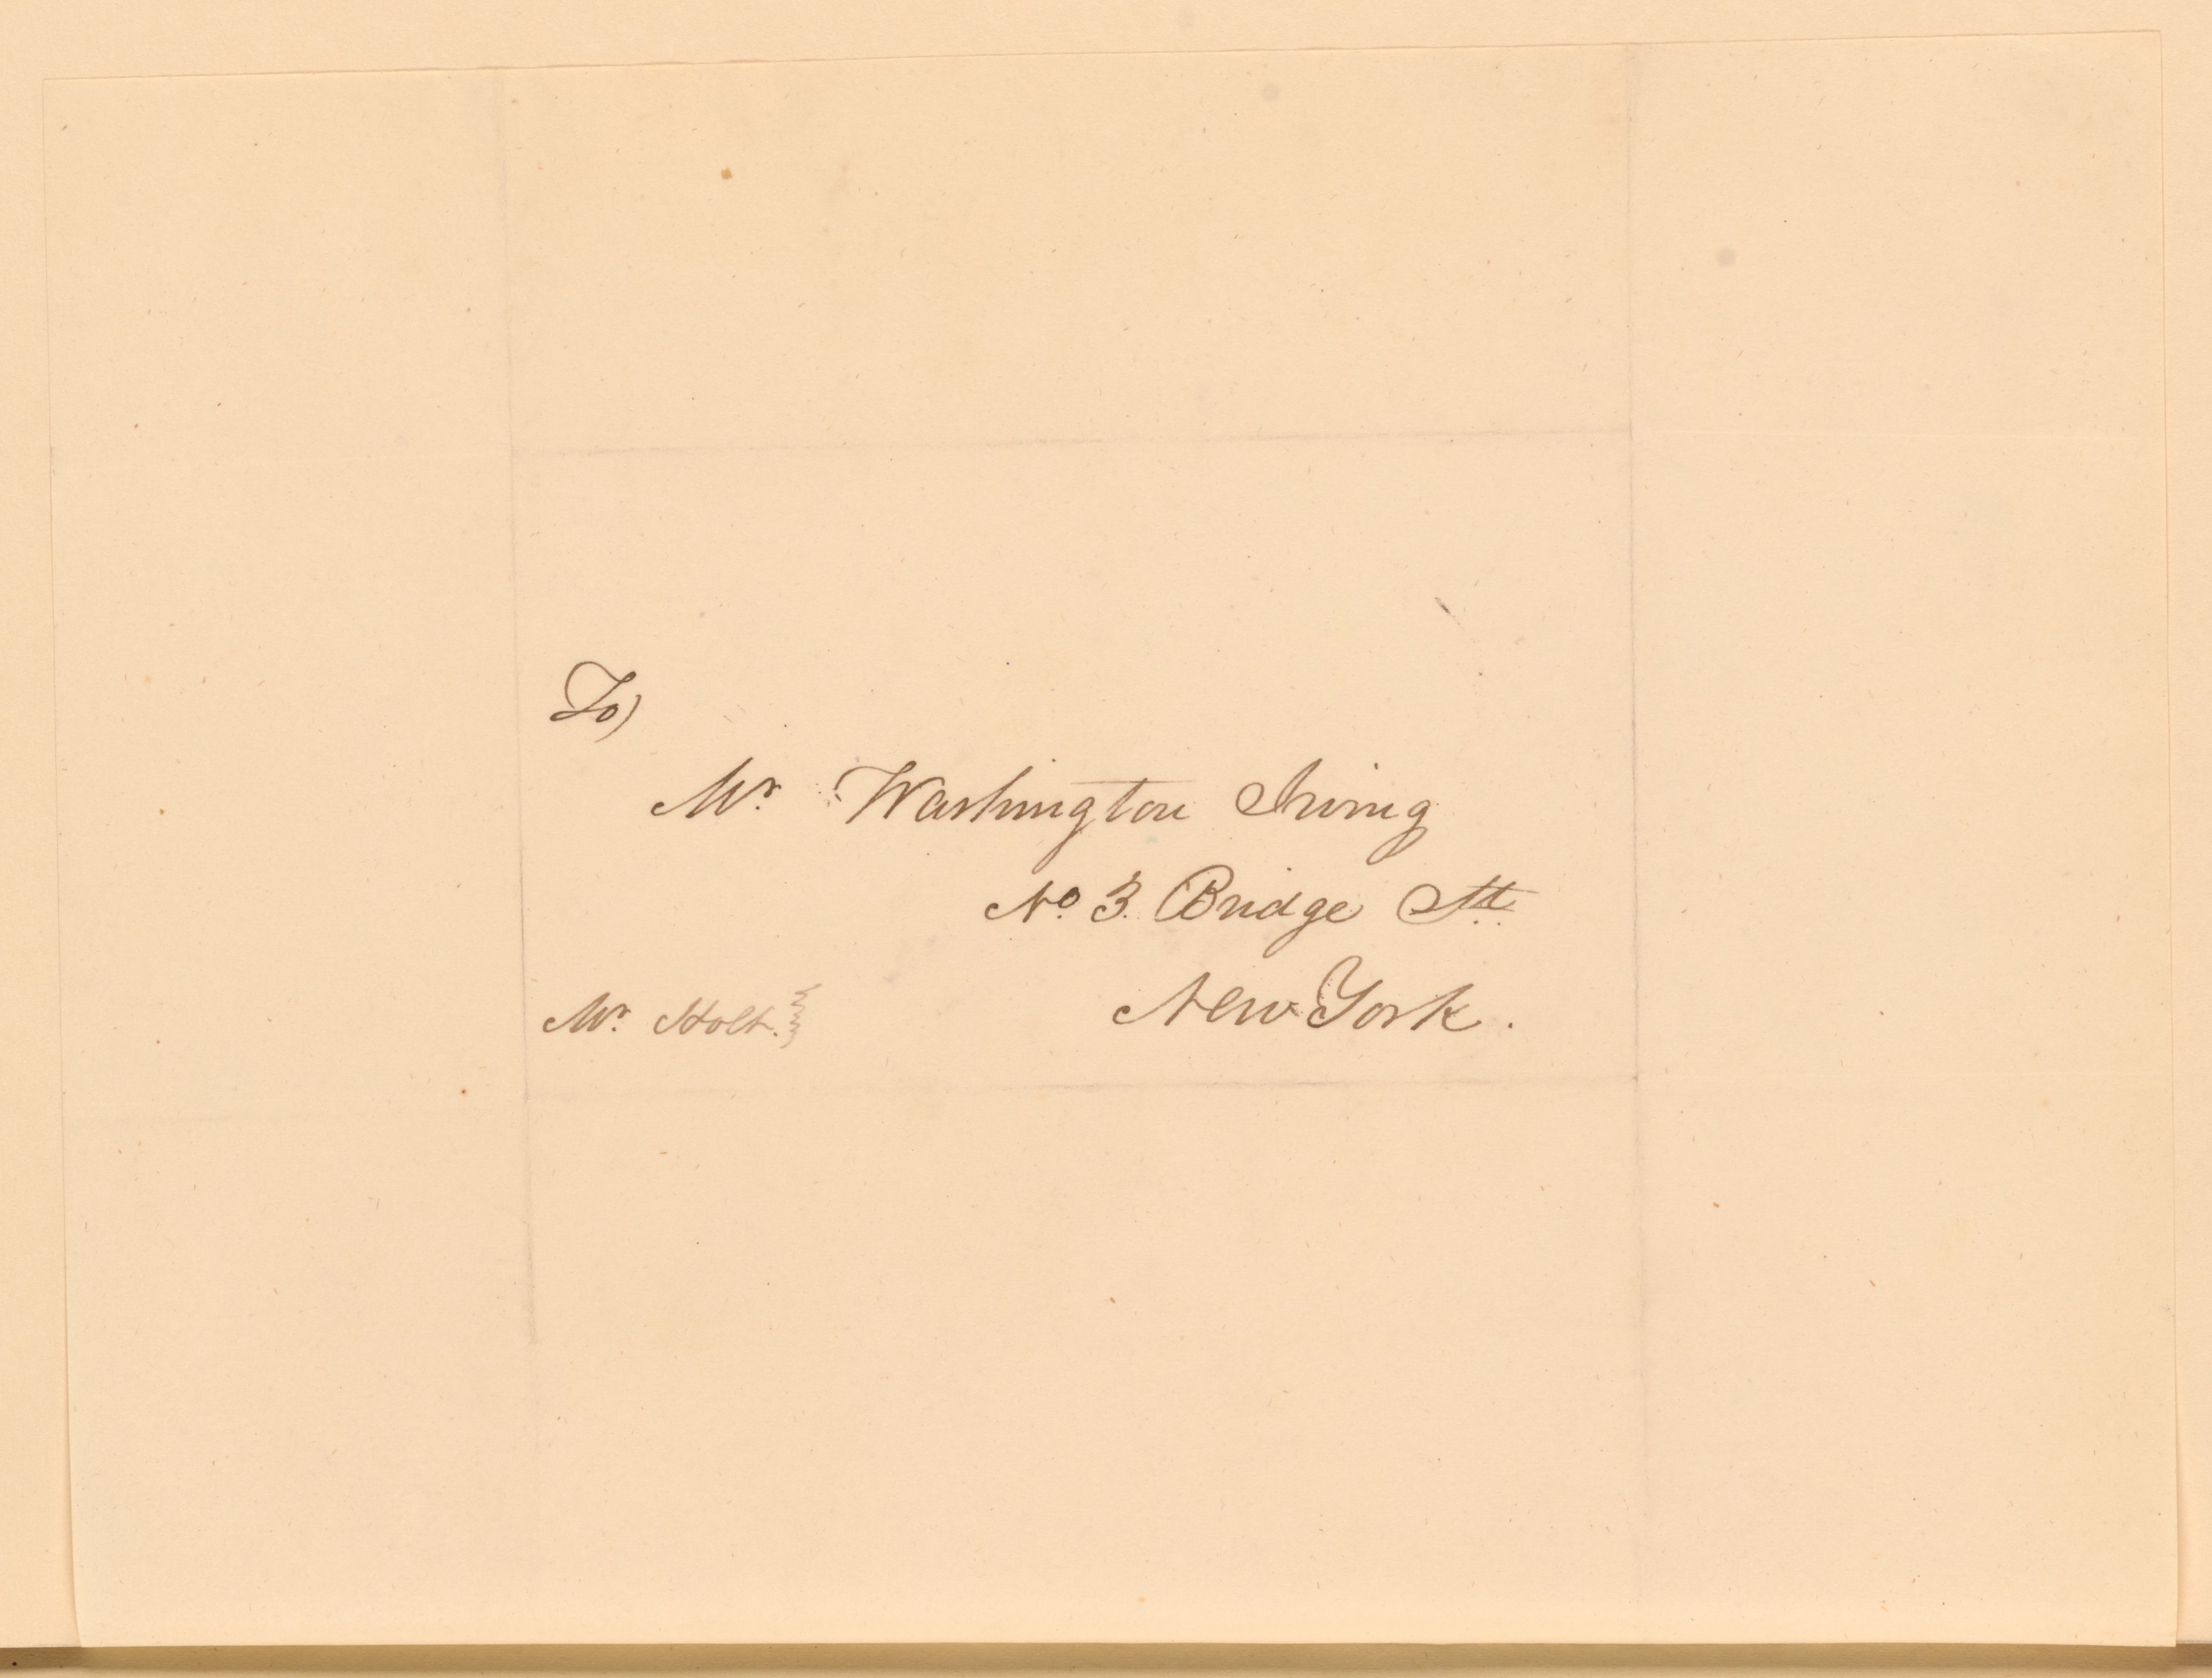 To)
Mr. Washington Irving
No. 3. Bridge Stt.
New York.
Mr. Holt.}